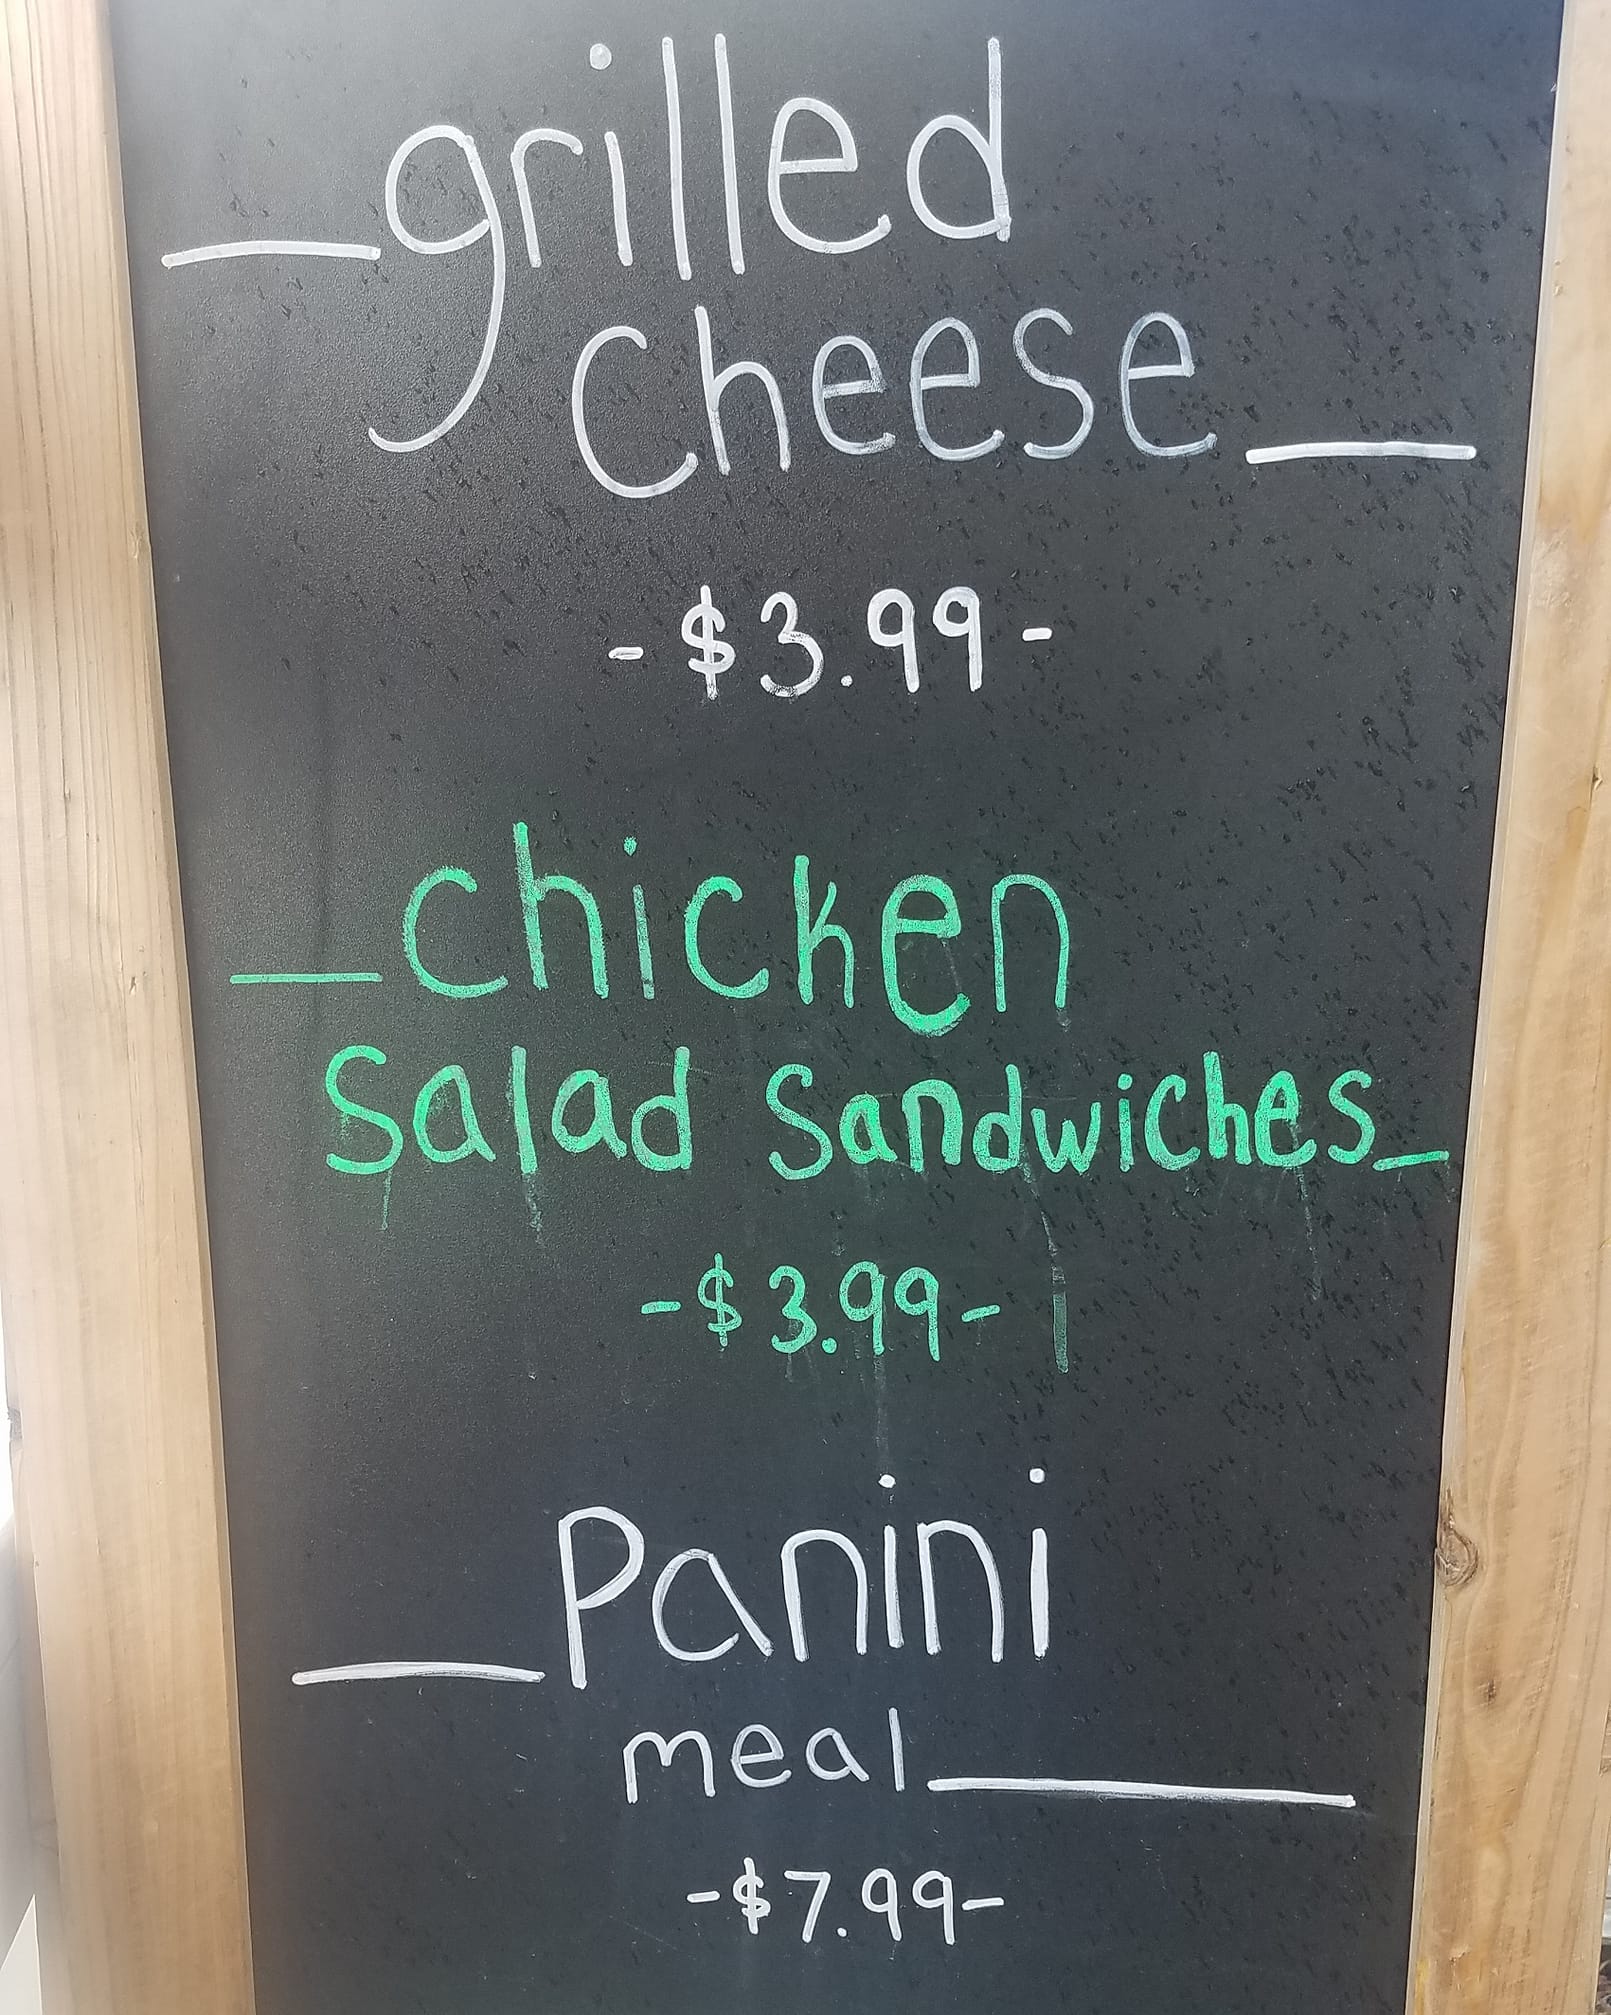 grilled
cheese
-$3.99-
chicken
Salad Sandwiches
-$3.99-
Panini
meal
-$7.99-